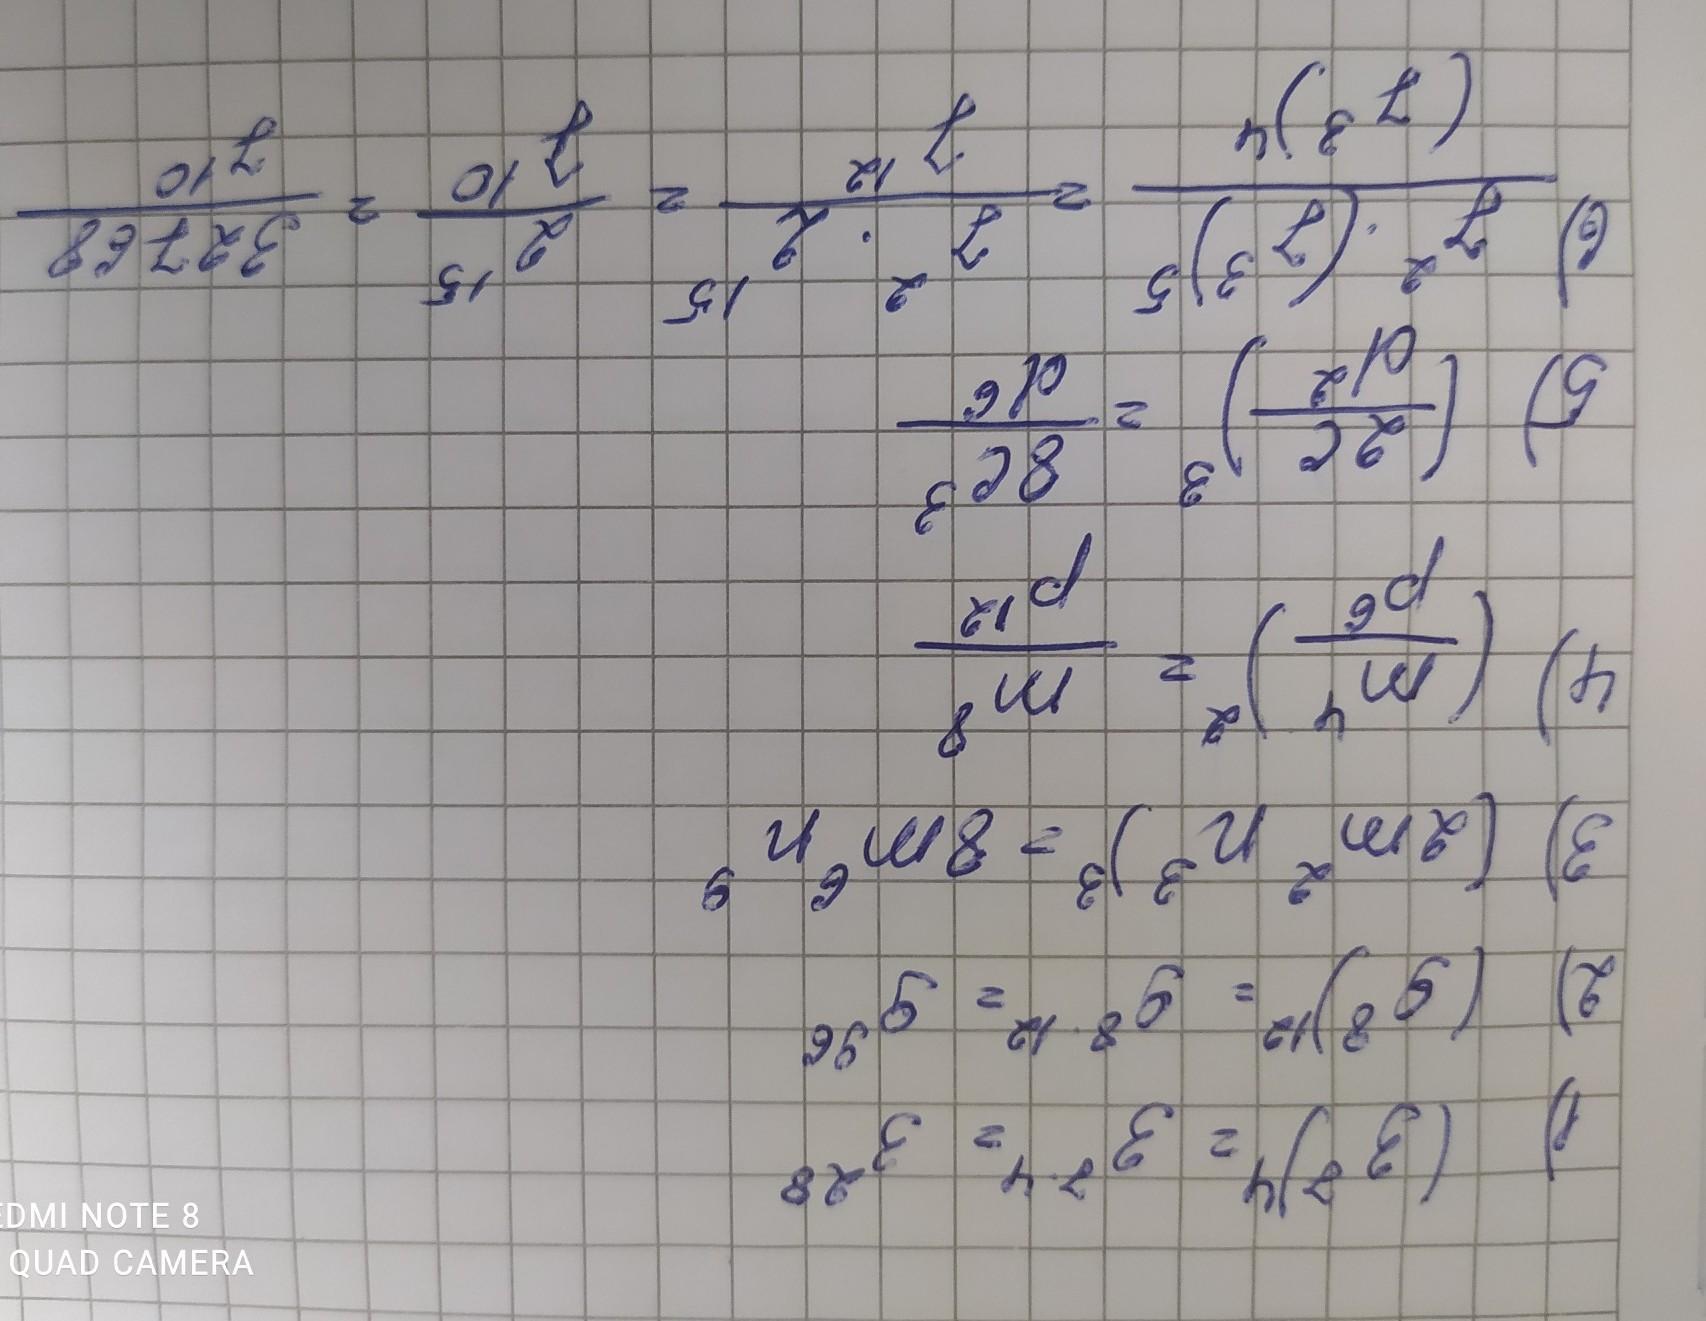 1) (3⁷)⁴ = 3⁷·⁴ = 3²⁸
2) (9⁸)¹² = 9⁸·¹² = 9⁹⁶
3) (2m² n³)³ = 8m⁶ n⁹
4) (m⁴/p⁶)² = m⁸/p¹²
5) (2c/d²)³ = 8c³/d⁶
6) 7² · (7³)⁵/(7³)⁴ = 7² · 2¹⁵/7¹² = 2¹⁵/7¹⁰ = 32768/7¹⁰
EDMI NOTE 8
QUAD CAMERA